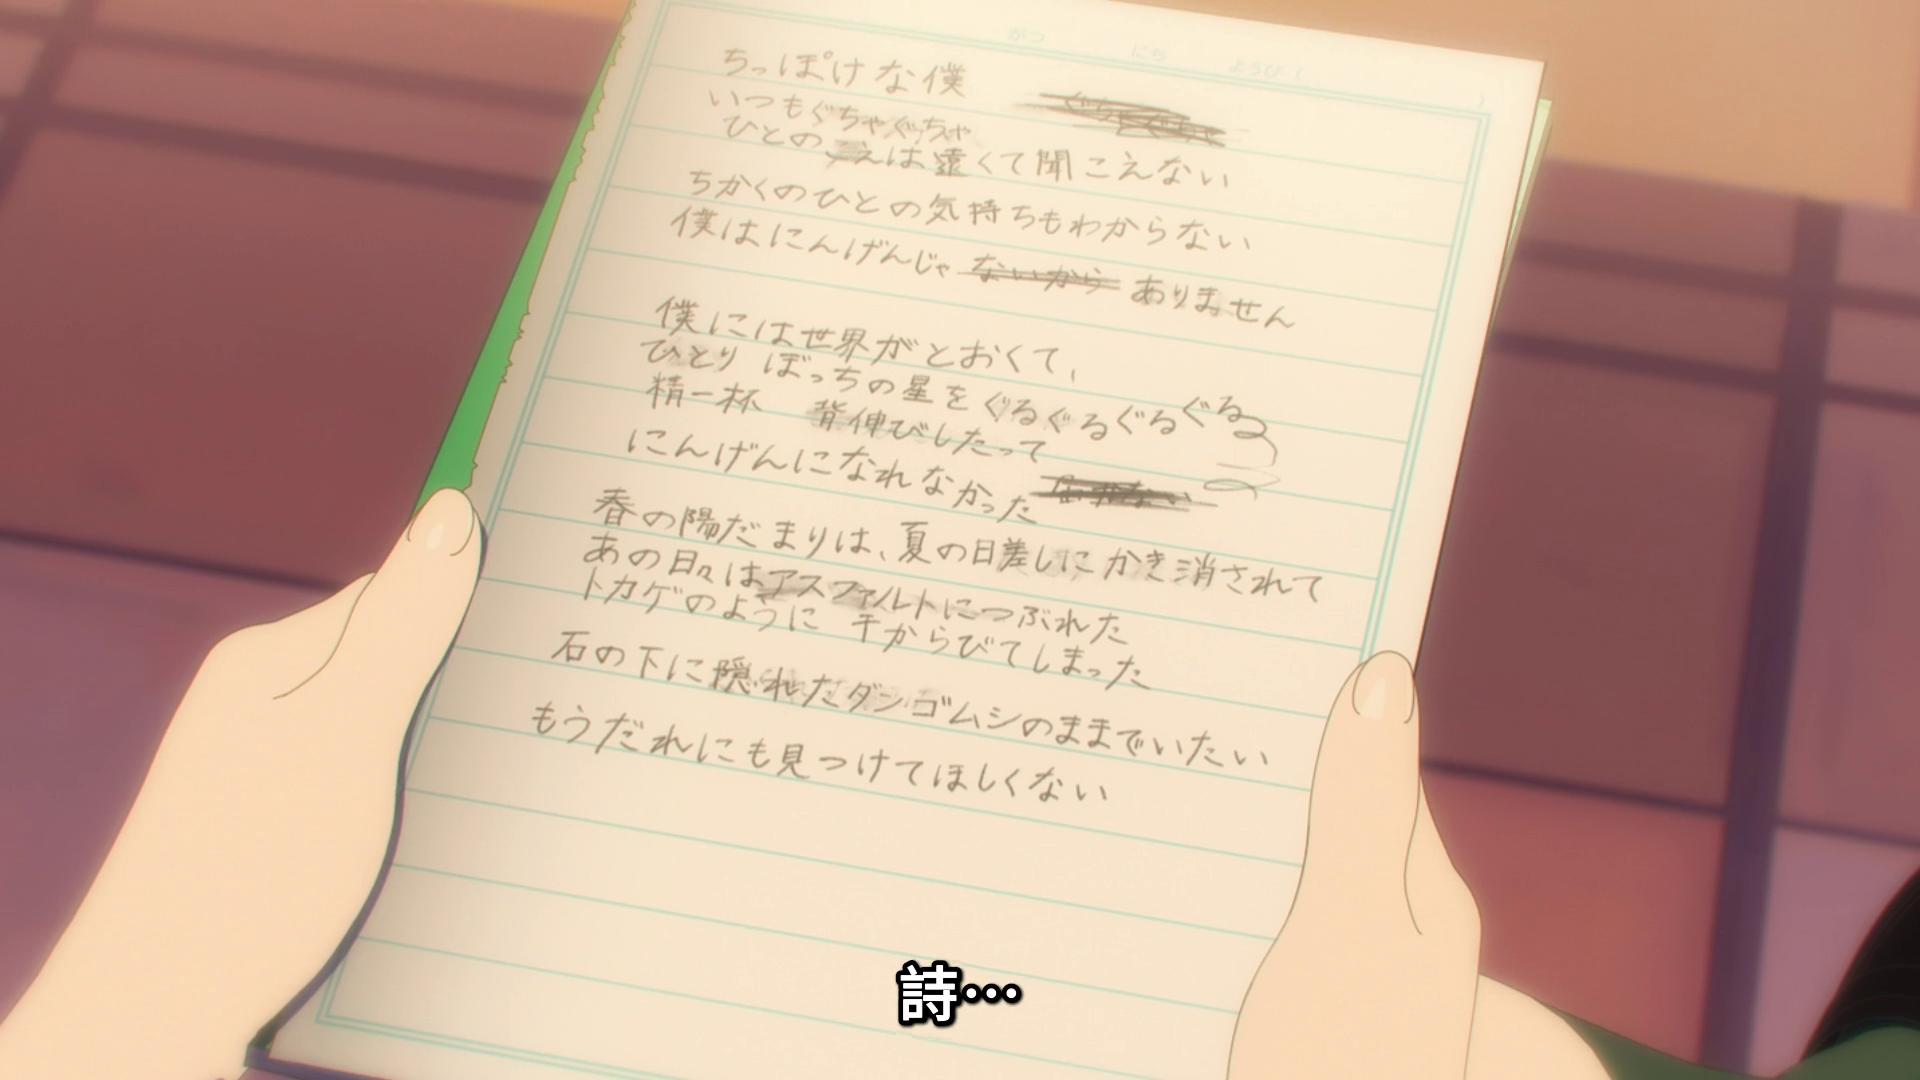 がつ にち ようび( )
ちっぽけな僕
いつもぐちゃぐっちゃ
ひとのこえは遠くて聞こえない
ちかくのひとの気持ちもわからない
僕はにんげんじゃないからありません
僕には世界がとおくて、
ひとりぼっちの星をぐるぐるぐるぐる
精一杯 背伸びしたって
にんげんになれなかった
春の陽だまりは、夏の日差しにかき消されて
あの日々はアスファルトにつぶれた
トカゲのように 干からびてしまった
石の下に隠れたダンゴムシのままでいたい
もうだれにも見つけてほしくない
詩…